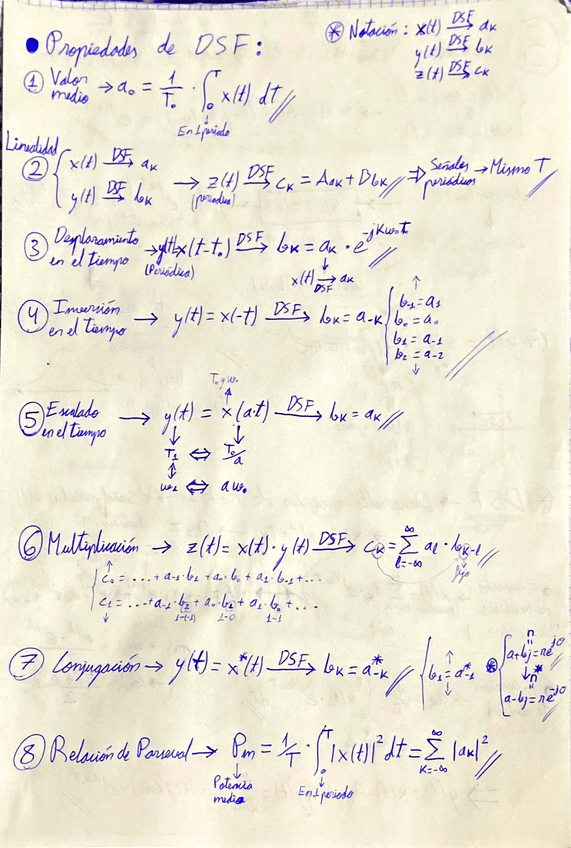 • Propiedades de DSF:
⊛ Notación: x(t) DSF→ aₖ
y(t) DSF→ bₖ
z(t) DSF→ cₖ
① Valor medio → a₀ = 1/T₀ · ∫₀ᵀ x(t) dt //
En 1 periodo
Linealidad
② { x(t) DSF→ aₖ
y(t) DSF→ bₖ → z(t) DSF→ cₖ = Aaₖ + Bbₖ // ⇒ Señales periódicas → Mismo T //
(periódica)
③ Desplazamiento en el tiempo → y(t)=x(t-t₀) DSF→ bₖ = aₖ · e^(-jKω₀t₀) //
(Periódica)
x(t) DSF→ aₖ
④ Inversión en el tiempo → y(t) = x(-t) DSF→ bₖ = a₋ₖ { ↑
b₋₁ = a₁
b₀ = a₀
b₁ = a₋₁
b₂ = a₋₂
↓ //
T₀ y ω₀
↑
⑤ Escalado en el tiempo → y(t) = x(a·t) DSF→ bₖ = aₖ //
↓ ↓
T₁ ⇔ T₀/a
⇕
ω₁ ⇔ aω₀
⑥ Multiplicación → z(t) = x(t) · y(t) DSF→ cₖ = ∑_(l=-∞)^∞ aₗ · bₖ₋ₗ //
fijo
{ ↑
c₀ = ...+a₋₁·b₁+a₀·b₀+a₁·b₋₁+...
c₁ = ...+a₋₁·b₂+a₀·b₁+a₁·b₀+...
↓ 1-(-1) 1-0 1-1
⑦ Conjugación → y(t) = x*(t) DSF→ bₖ = a*₋ₖ // { ↑
b₁ = a*₋₁
↓ ⊛ { n
=
a+bj = re^(jθ)
↓ n*
=
a-bj = re^(-jθ)
⑧ Relación de Parseval → Pm = 1/T · ∫₀ᵀ |x(t)|² dt = ∑_(K=-∞)^∞ |aₖ|² //
Potencia media
En 1 periodo